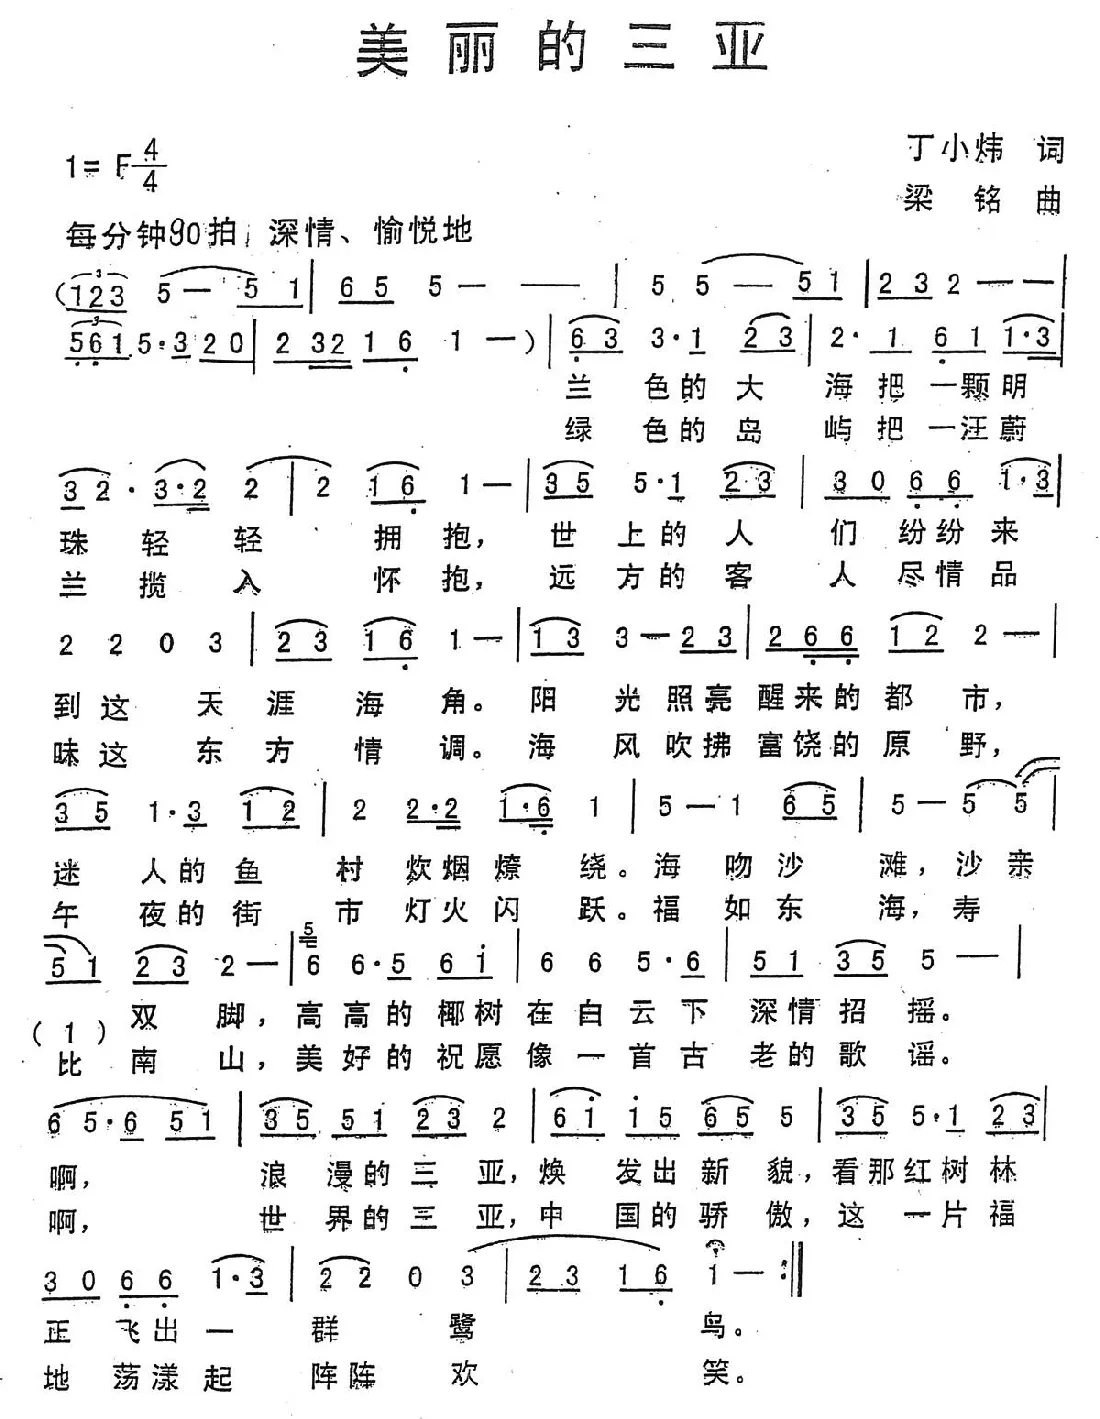 美丽的三亚
1= F 4/4
丁小炜 词
梁 铭 曲
每分钟90拍, 深情、愉悦地
(123 5 — 51 | 65 5 — — | 5 5 — 51 | 23 2 — —
561 5·3 20 | 232 16 1 — ) | 63 3·1 23 | 2· 1 61 1·3
兰 色的大 海把一颗明
绿 色的岛 屿把一汪蔚
32· 3·2 2 | 2 16 1 — | 35 5·1 23 | 30 66 1·3
珠 轻 轻 拥 抱, 世 上的人 们 纷纷来
兰 揽 入 怀 抱, 远 方的客 人 尽情品
2 2 0 3 | 23 16 1 — | 13 3 — 23 | 266 12 2 —
到这 天涯海角。阳 光照亮醒来的都 市,
味这 东方情调。海 风吹拂富饶的原 野,
35 1·3 12 | 2 2·2 1·6 1 | 5 — 1 65 | 5 — 5 5
迷 人的鱼 村 炊烟燎 绕。海 吻沙 滩,沙亲
午 夜的街 市 灯火闪 跃。福 如东 海,寿
51 23 2 — | 5 6 6·5 61 | 6 6 5·6 | 51 35 5 —
双 脚,高高的椰树在白云下 深情招 摇。
(1)
比 南 山,美好的祝愿像一首古 老的歌 谣。
6 5·6 51 | 35 51 23 2 | 61 15 65 5 | 35 5·1 23
啊, 浪 漫的三 亚,焕 发出新 貌,看那红树林
啊, 世 界的三 亚,中 国的骄 傲,这 一片福
30 66 1·3 | 22 0 3 | 23 16 1 — :‖
正 飞出一 群 鹭 鸟。
地 荡漾起 阵阵 欢 笑。